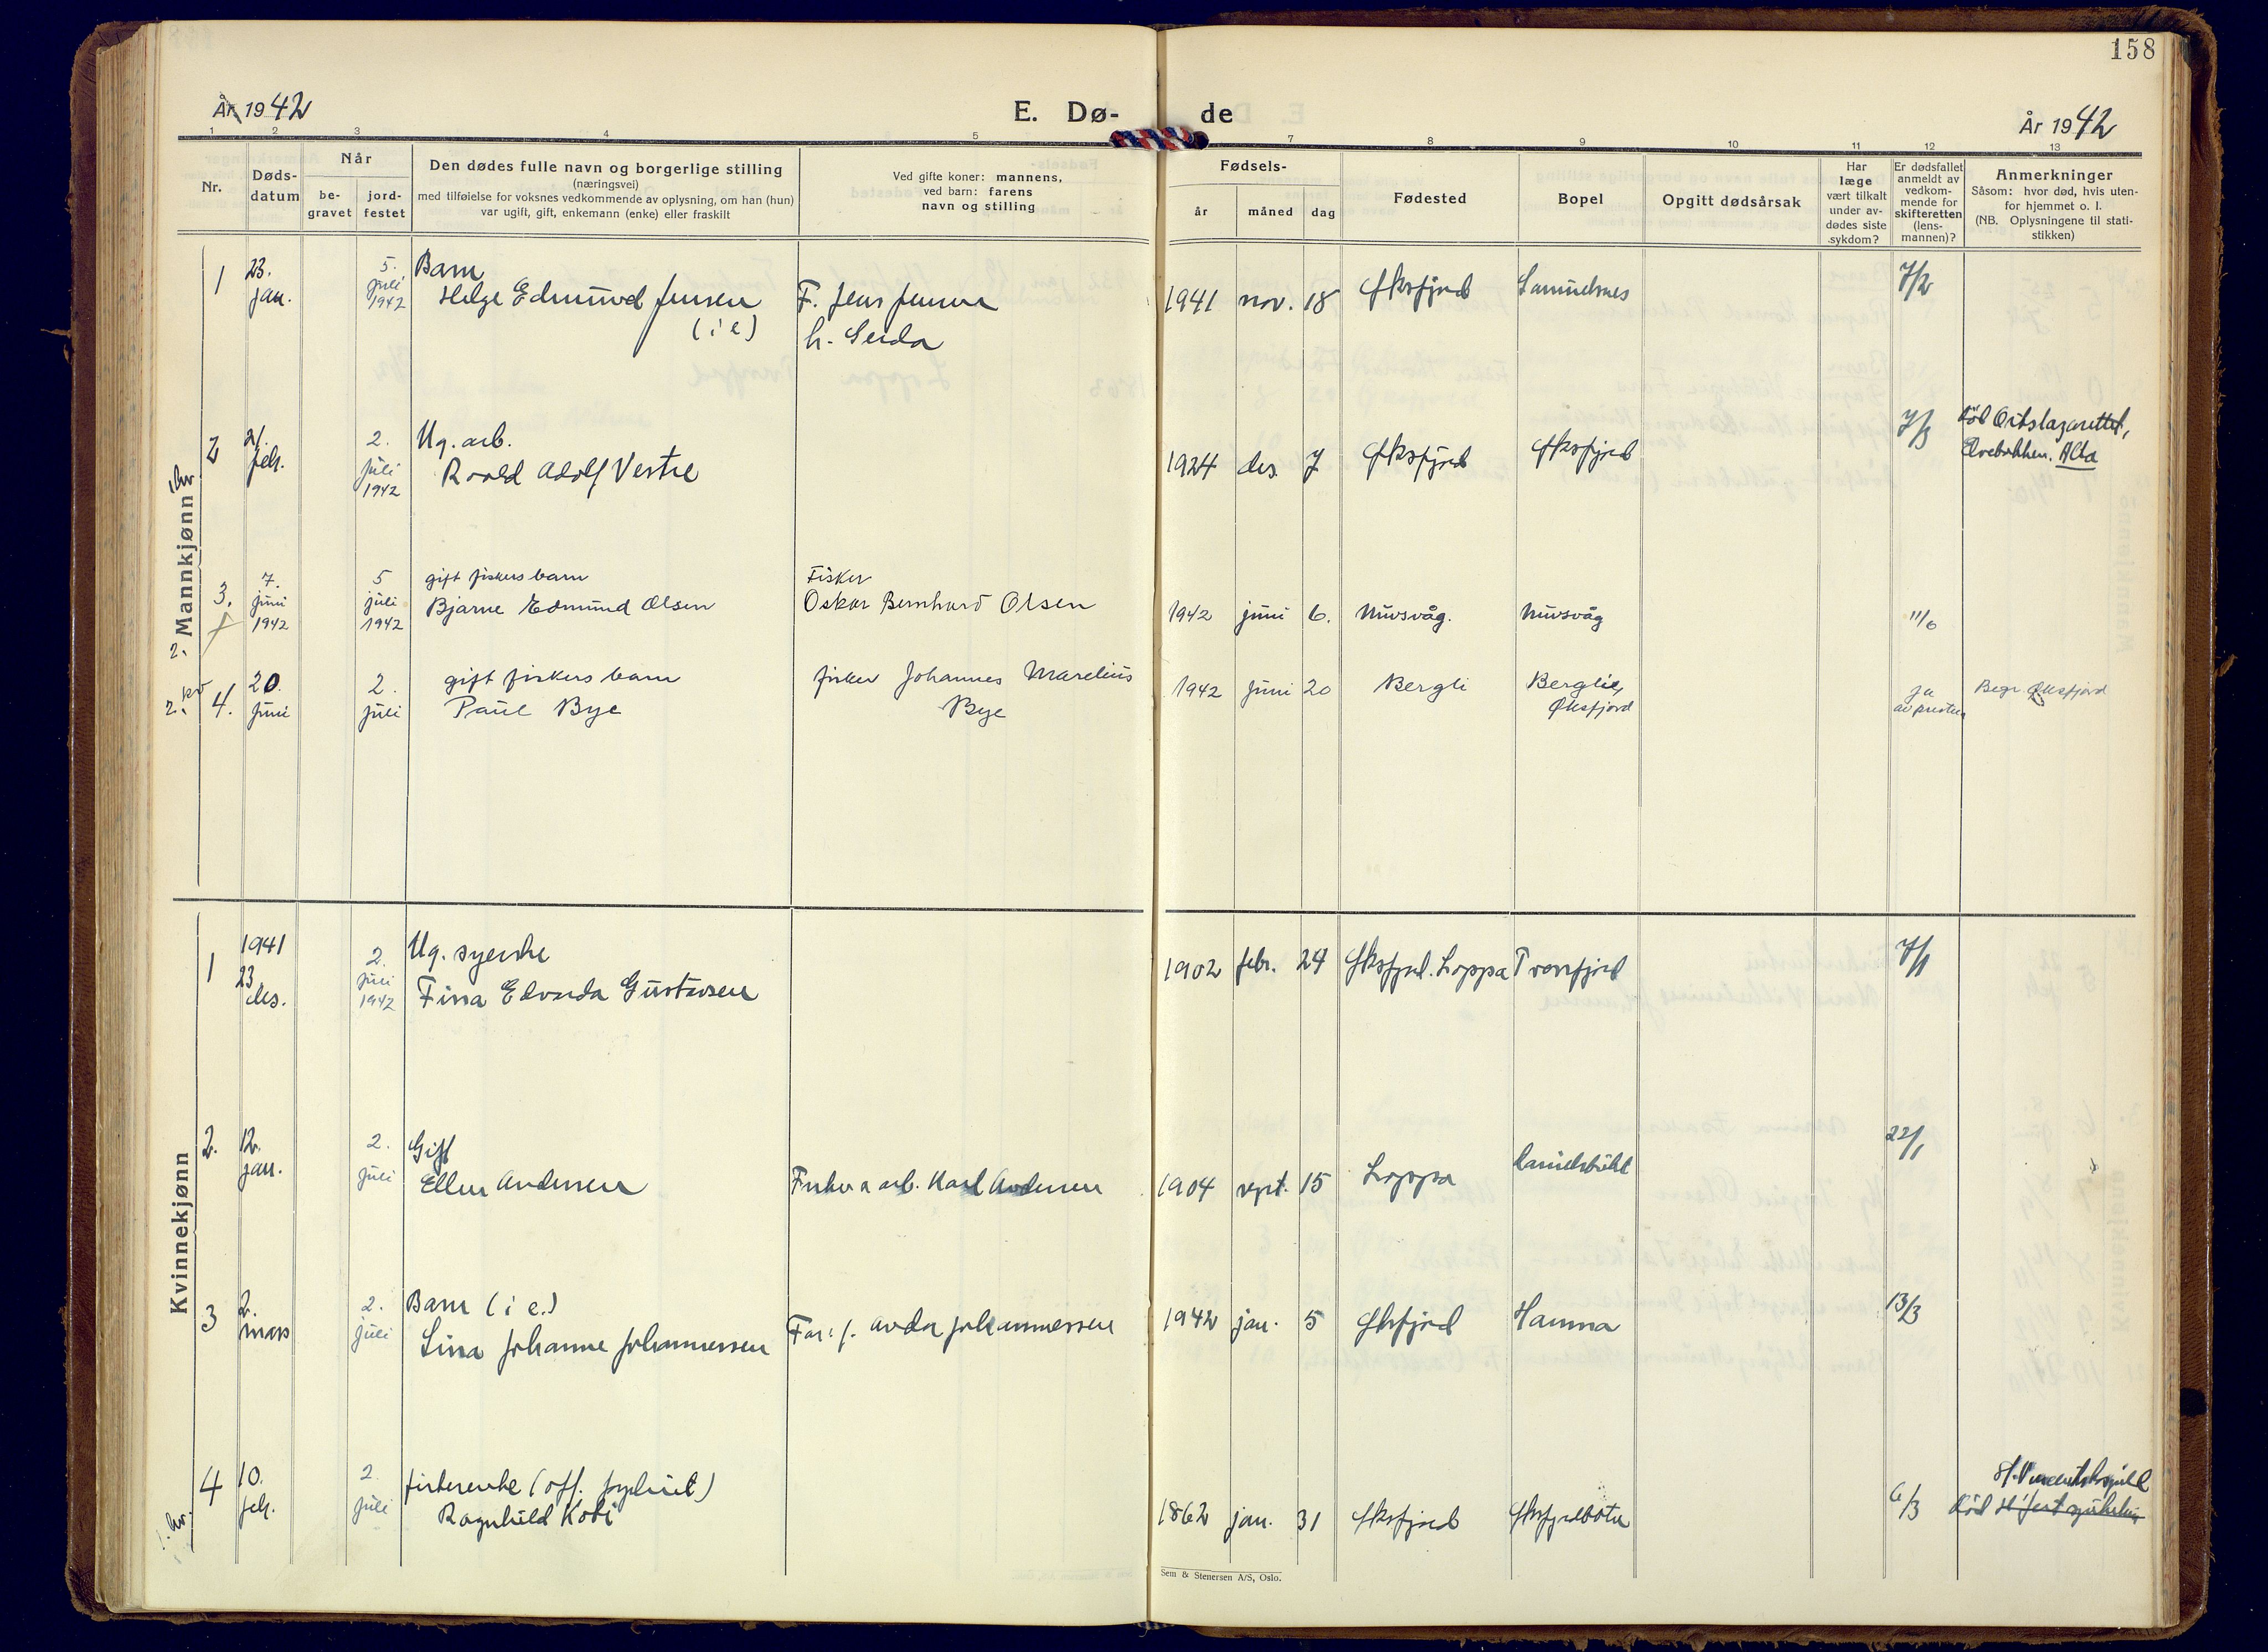 158
År 1942
E. Dø-
de
År 1942
1 2 3 4 5 7 8 9 10 11 12 13
Nr.
Døds-
datum
Når
be-
gravet
jord-
festet
Den dødes fulle navn og borgerlige stilling
(næringsvei)
med tilføielse for voksnes vedkommende av oplysning, om han (hun)
var ugift, gift, enkemann (enke) eller fraskilt
Ved gifte koner: mannens,
ved barn: farens
navn og stilling
Fødsels-
år måned dag
Fødested
Bopel
Opgitt dødsårsak
Har
læge
vært tilkalt
under av-
dødes siste
sykdom?
Er dødsfallet
anmeldt av
vedkom-
mende for
skifteretten
(lens-
mannen)?
Anmerkninger
Såsom: hvor død, hvis uten-
for hjemmet o. l.
(NB. Oplysningene til stati-
stikken)
Mannkjønn
1 23. jan.
5. juli 1942
Barn
Helge Edmund Jensen
(i e)
F. Jens Jensen
h. Gerda
1941 nov. 18 Øksfjord Samuelsnes 7/2
2 21. feb.
2. juli 1942
Ug. arb.
Roald Adolf Vestre
1924 des. 7 Øksfjord Øksfjord 7/3
død Ortslazarettet,
Elvebakken. Alta
3. 7. juni 1942
5 juli 1942
gift fiskers barn
Bjarne Edmund Olsen
Fisker
Oskar Bernhard Olsen
1942 juni 6. Nuvsvåg. Nuvsvåg 11/6
4. 20. juni
2. juli
gift fiskers barn
Paul Bye
fisker Johannes Marelius
Bye
1942 juni 20 Bergli Berglie,
Øksfjord
ja
av presten
Begr. Øksfjord
Kvinnekjønn
1 1941 23 des.
2. juli 1942
Ug. syerske
Fina Edvarda Gustavsen
1902 febr. 24 Øksfjord. Loppa Tverrfjord 7/1
2. 12. jan.
2. juli
Gift
Ellen Andersen
Fisker o arb. Karl Andersen
1904 sept. 15 Loppa 22/1
3 2. mars
2. juli
Barn (i e.)
Lina Johanne Johannessen
Far: f. Johannessen
1942 jan. 5 Øksfjord Hamna 13/3
4 10. feb.
2. juli
fiskerenke (off. forpleiet)
Ragnhild Kobi
1862 jan. 31 Øksfjord Øksfjordbotn 6/3
død
Sem & Stenersen A/S, Oslo.